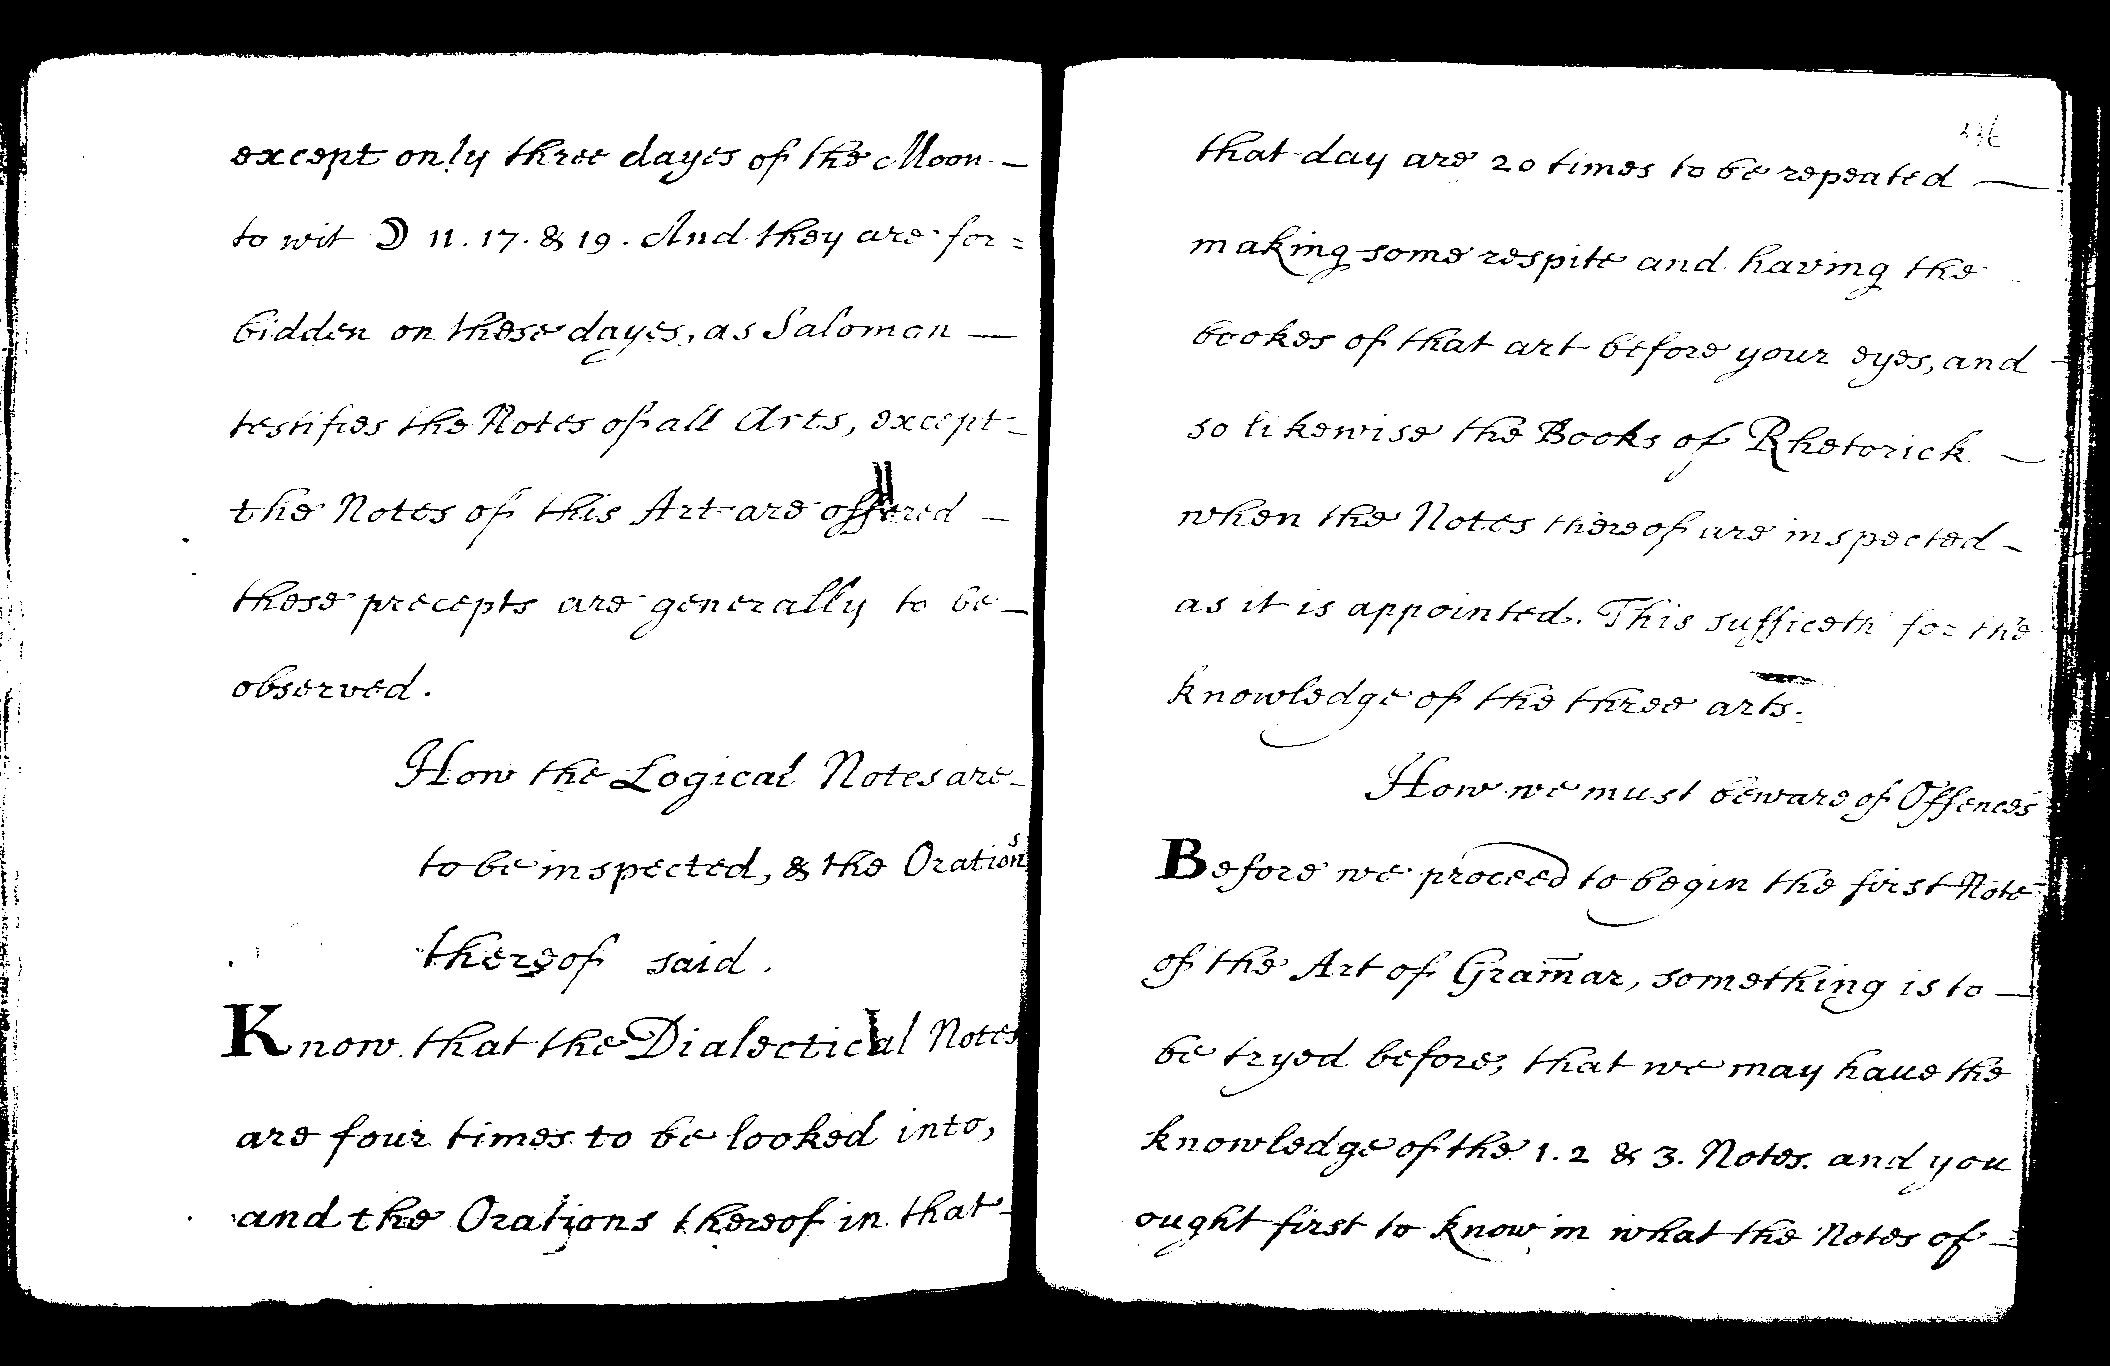 except only three dayes of the Moon —
to wit ☽ 11. 17. & 19. And they are for=
bidden on these dayes, as Salomon —
testifies the Notes of all Arts, except-
the Notes of this Art are offered —
these precepts are generally to be —
observed.
How the Logical Notes are-
to be inspected, & the Orations
thereof said.
Know that the Dialectical Notes
are four times to be looked into,
and the Orations thereof in that-
that day are 20 times to be repeated —
making some respite and having the
bookes of that art before your eyes, and
so likewise the Books of Rhetorick —
when the Notes thereof are inspected -
as it is appointed. This sufficeth for the
knowledge of the three arts.
How we must beware of Offences
Before we proceed to begin the first Note
of the Art of Gram̄ar, something is to —
be tryed before, that we may haue the
knowledge of the 1. 2 & 3. Notes. and you
ought first to know in what the Notes of =